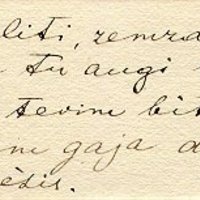 liti, zemza
tu augi
tevim bit
gaja
ēdis.